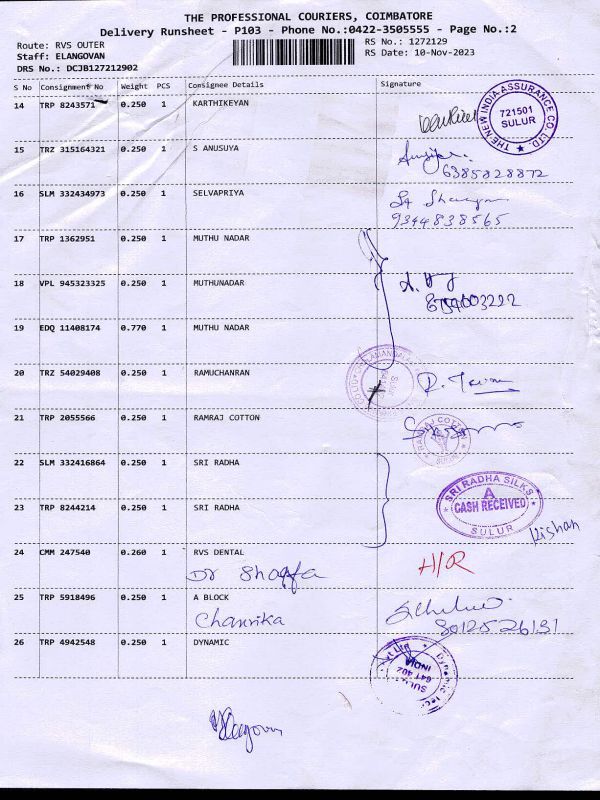 THE PROFESSIONAL COURIERS, COIMBATORE
Delivery Runsheet - P103 - Phone No.:0422-3505555 - Page No.:2
Route: RVS OUTER
Staff: ELANGOVAN
DRS No.: DCJB127212902
RS No.: 1272129
RS Date: 10-Nov-2023
S No Consignment No Weight PCS Consignee Details Signature
14 TRP 8243571 0.250 1 KARTHIKEYAN
THE NEW INDIA ASSURANCE CO LTD.
721501
SULUR
15 TRZ 315164321 0.250 1 S ANUSUYA
6385828872
16 SLM 332434973 0.250 1 SELVAPRIYA
9344838565
17 TRP 1362951 0.250 1 MUTHU NADAR
18 VPL 945323325 0.250 1 MUTHUNADAR
19 EDQ 11408174 0.770 1 MUTHU NADAR
20 TRZ 54029408 0.250 1 RAMUCHANRAN
21 TRP 2055566 0.250 1 RAMRAJ COTTON
22 SLM 332416864 0.250 1 SRI RADHA
23 TRP 8244214 0.250 1 SRI RADHA
SRI RADHA SILKS
A
CASH RECEIVED
SULUR
Kishan
24 CMM 247540 0.260 1 RVS DENTAL
H/R
25 TRP 5918496 0.250 1 A BLOCK
Chanrika
8012526131
26 TRP 4942548 0.250 1 DYNAMIC
641 402
INDIA